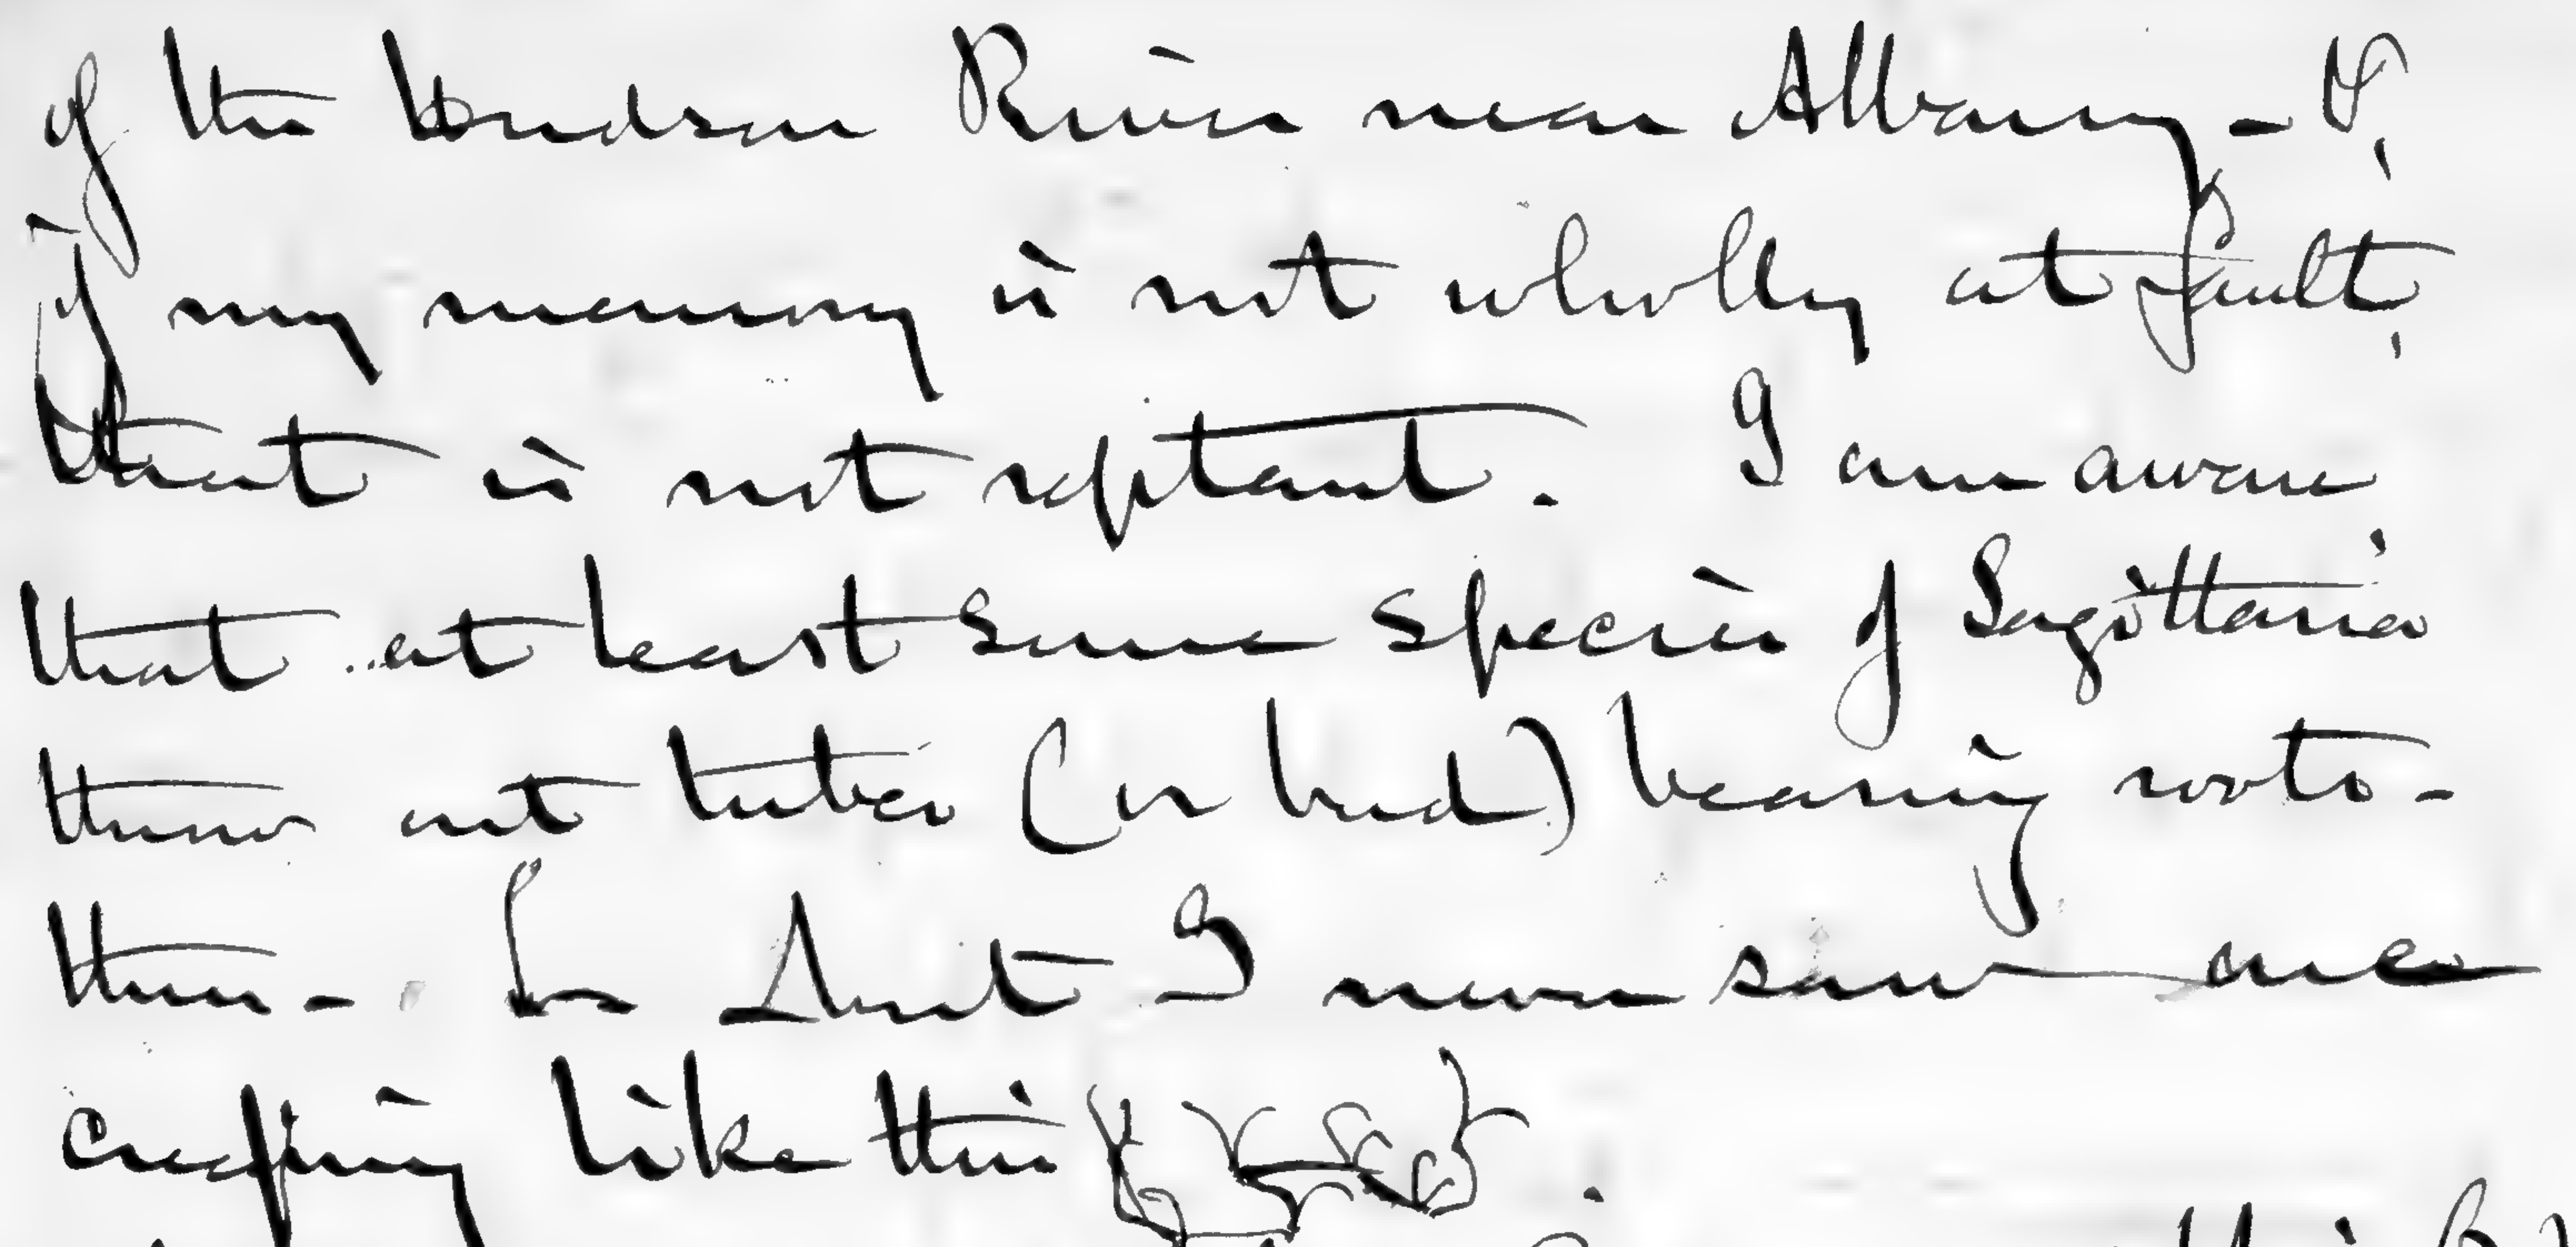 of the Hudson River near Albany - &,
if my memory is not wholly at fault,
that is not reptant. I am aware,
that at least some species of Sagittaria
throw out tuber (or bud) bearing roots-
them - I never saw one
creeping like this .